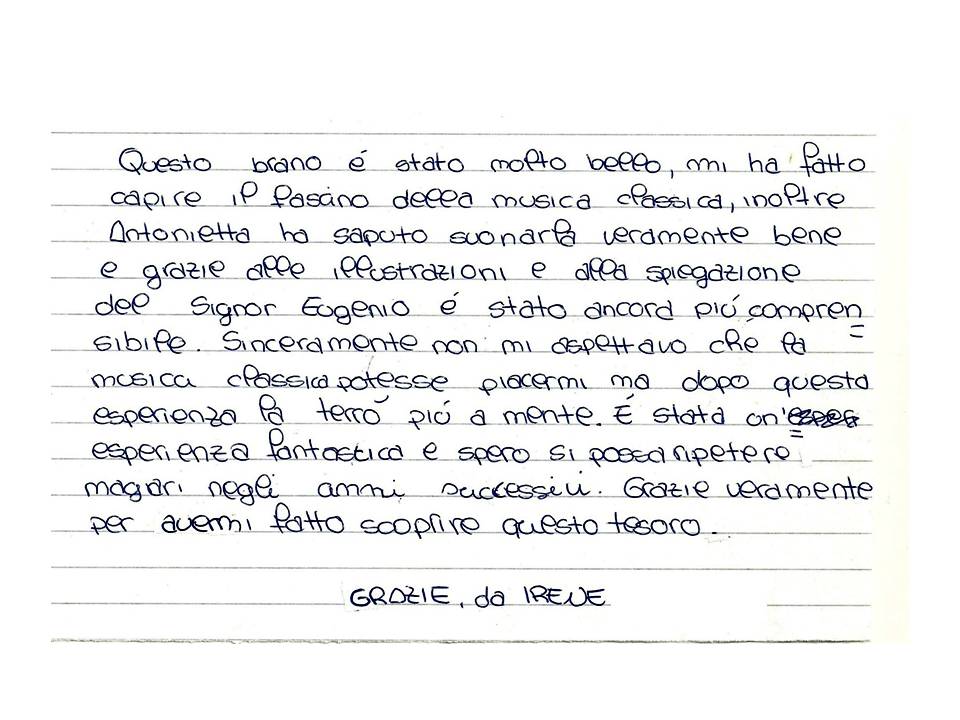 Questo brano é stato molto bello, mi ha fatto
capire il fascino della musica classica, inoltre
Antonietta ha saputo suonarla veramente bene
e grazie alle illustrazioni e alla spiegazione
del Signor Eugenio é stato ancora piú compren
sibile. Sinceramente non mi aspettavo che la
musica classica potesse piacermi ma dopo questa
esperienza la terró piú a mente. É stata un'
esperienza fantastica e spero si possa ripetere
magari negli anni successivi. Grazie veramente
per avermi fatto scoprire questo tesoro.
GRAZIE, da IRENE